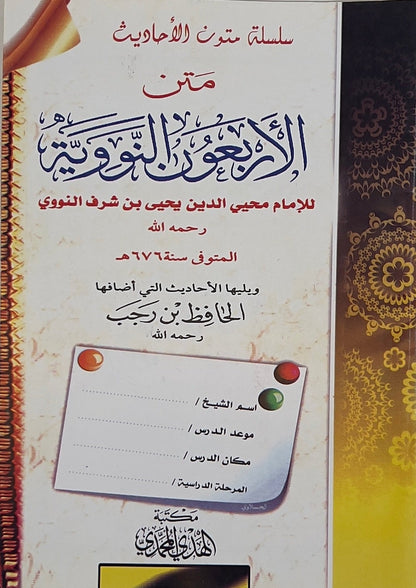 سلسلة متون الأحاديث
مَتن
الأربعون النووية
للإمام محيي الدين يحيى بن شرف النووي
رحمه الله
المتوفى سنة ٦٧٦هـ
ويليها الأحاديث التي أضافها
الحافظ بن رجب
رحمه الله
اسم الشيخ /
موعد الدرس /
مكان الدرس /
المرحلة الدراسية /
مكتبة
الهدي المحمدي